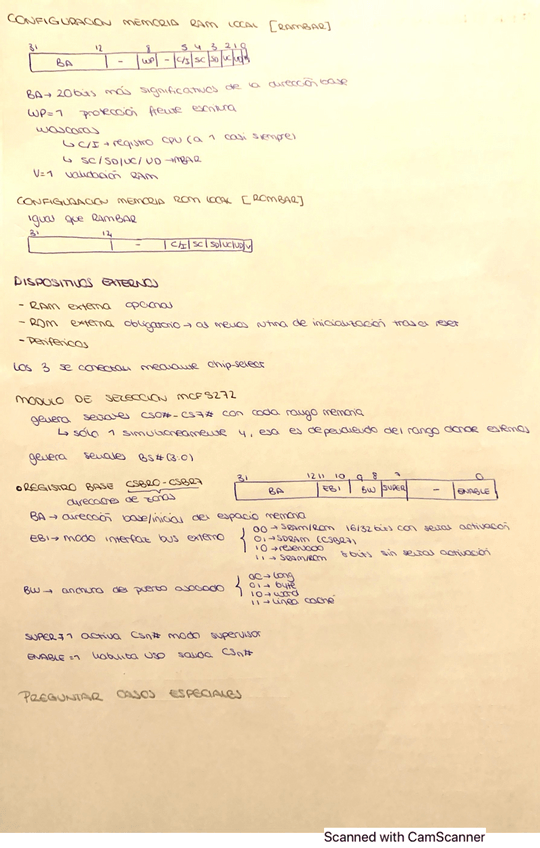 CONFIGURACION MEMORIA RAM LOCAL [RAMBAR]
31 12 8 5 4 3 2 1 0
BA - WP - C/I SC SD UC UD V
BA → 20 bits más significativos de la dirección base
WP=1 protección frente escritura
máscaras
↳ C/I → registro CPU (a 1 casi siempre)
↳ SC/SD/UC/UD → MBAR
V=1 validación RAM
CONFIGURACION MEMORIA ROM LOCAL [ROMBAR]
igual que RAMBAR
31 12
- C/I SC SD UC UD V
DISPOSITIVOS EXTERNOS
- RAM externa opcional
- ROM externa obligatorio → al menos rutina de inicialización tras el reset
- Periféricos
Los 3 se conectan mediante chip-select
MODULO DE SELECCION MCF5272
genera señales CS0#-CS7# con cada rango memoria
↳ sólo 1 simultáneamente y, esa es dependiendo del rango donde estemos
genera señales BS#(3:0)
• REGISTRO BASE CSBR0-CSBR7
direcciones de zonas
31 12 11 10 9 8 7 0
BA EBI BW SUPER - ENABLE
BA → dirección base/inicial del espacio memoria
EBI → modo interfaz bus externo
00 → SRAM/ROM 16/32 bits con señas activación
01 → SDRAM (CSBR7)
10 → reservado
11 → SRAM/ROM 8 bits sin señas activación
BW → anchura del puerto asociado
00 → long
01 → byte
10 → word
11 → línea caché
SUPER=1 activa CSn# modo supervisor
ENABLE=1 habilita uso salida CSn#
PREGUNTAR CASOS ESPECIALES
Scanned with CamScanner